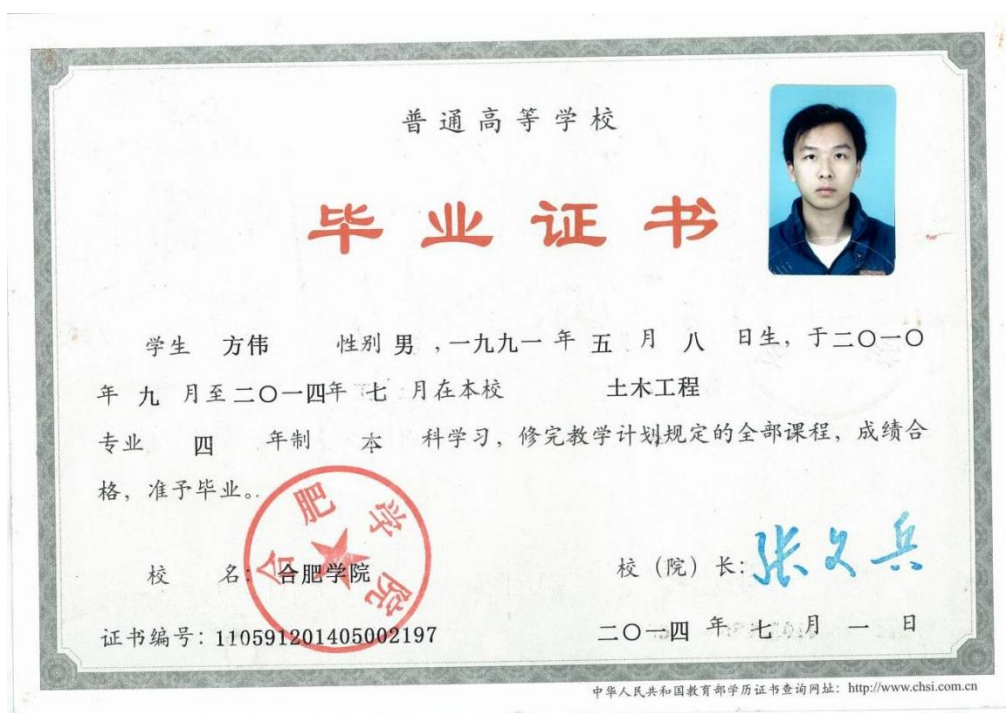 普通高等学校
毕业证书
学生 方伟 性别 男 ,一九九一 年 五 月 八 日生，于二〇一〇
年 九 月至二〇一四年 七 月在本校 土木工程
专业 四 年制 本 科学习，修完教学计划规定的全部课程，成绩合
格，准予毕业。
合肥学院
校 名: 合肥学院
校（院）长: 张文兵
证书编号: 110591201405002197
二〇一四 年 七 月 一 日
中华人民共和国教育部学历证书查询网址: http://www.chsi.com.cn